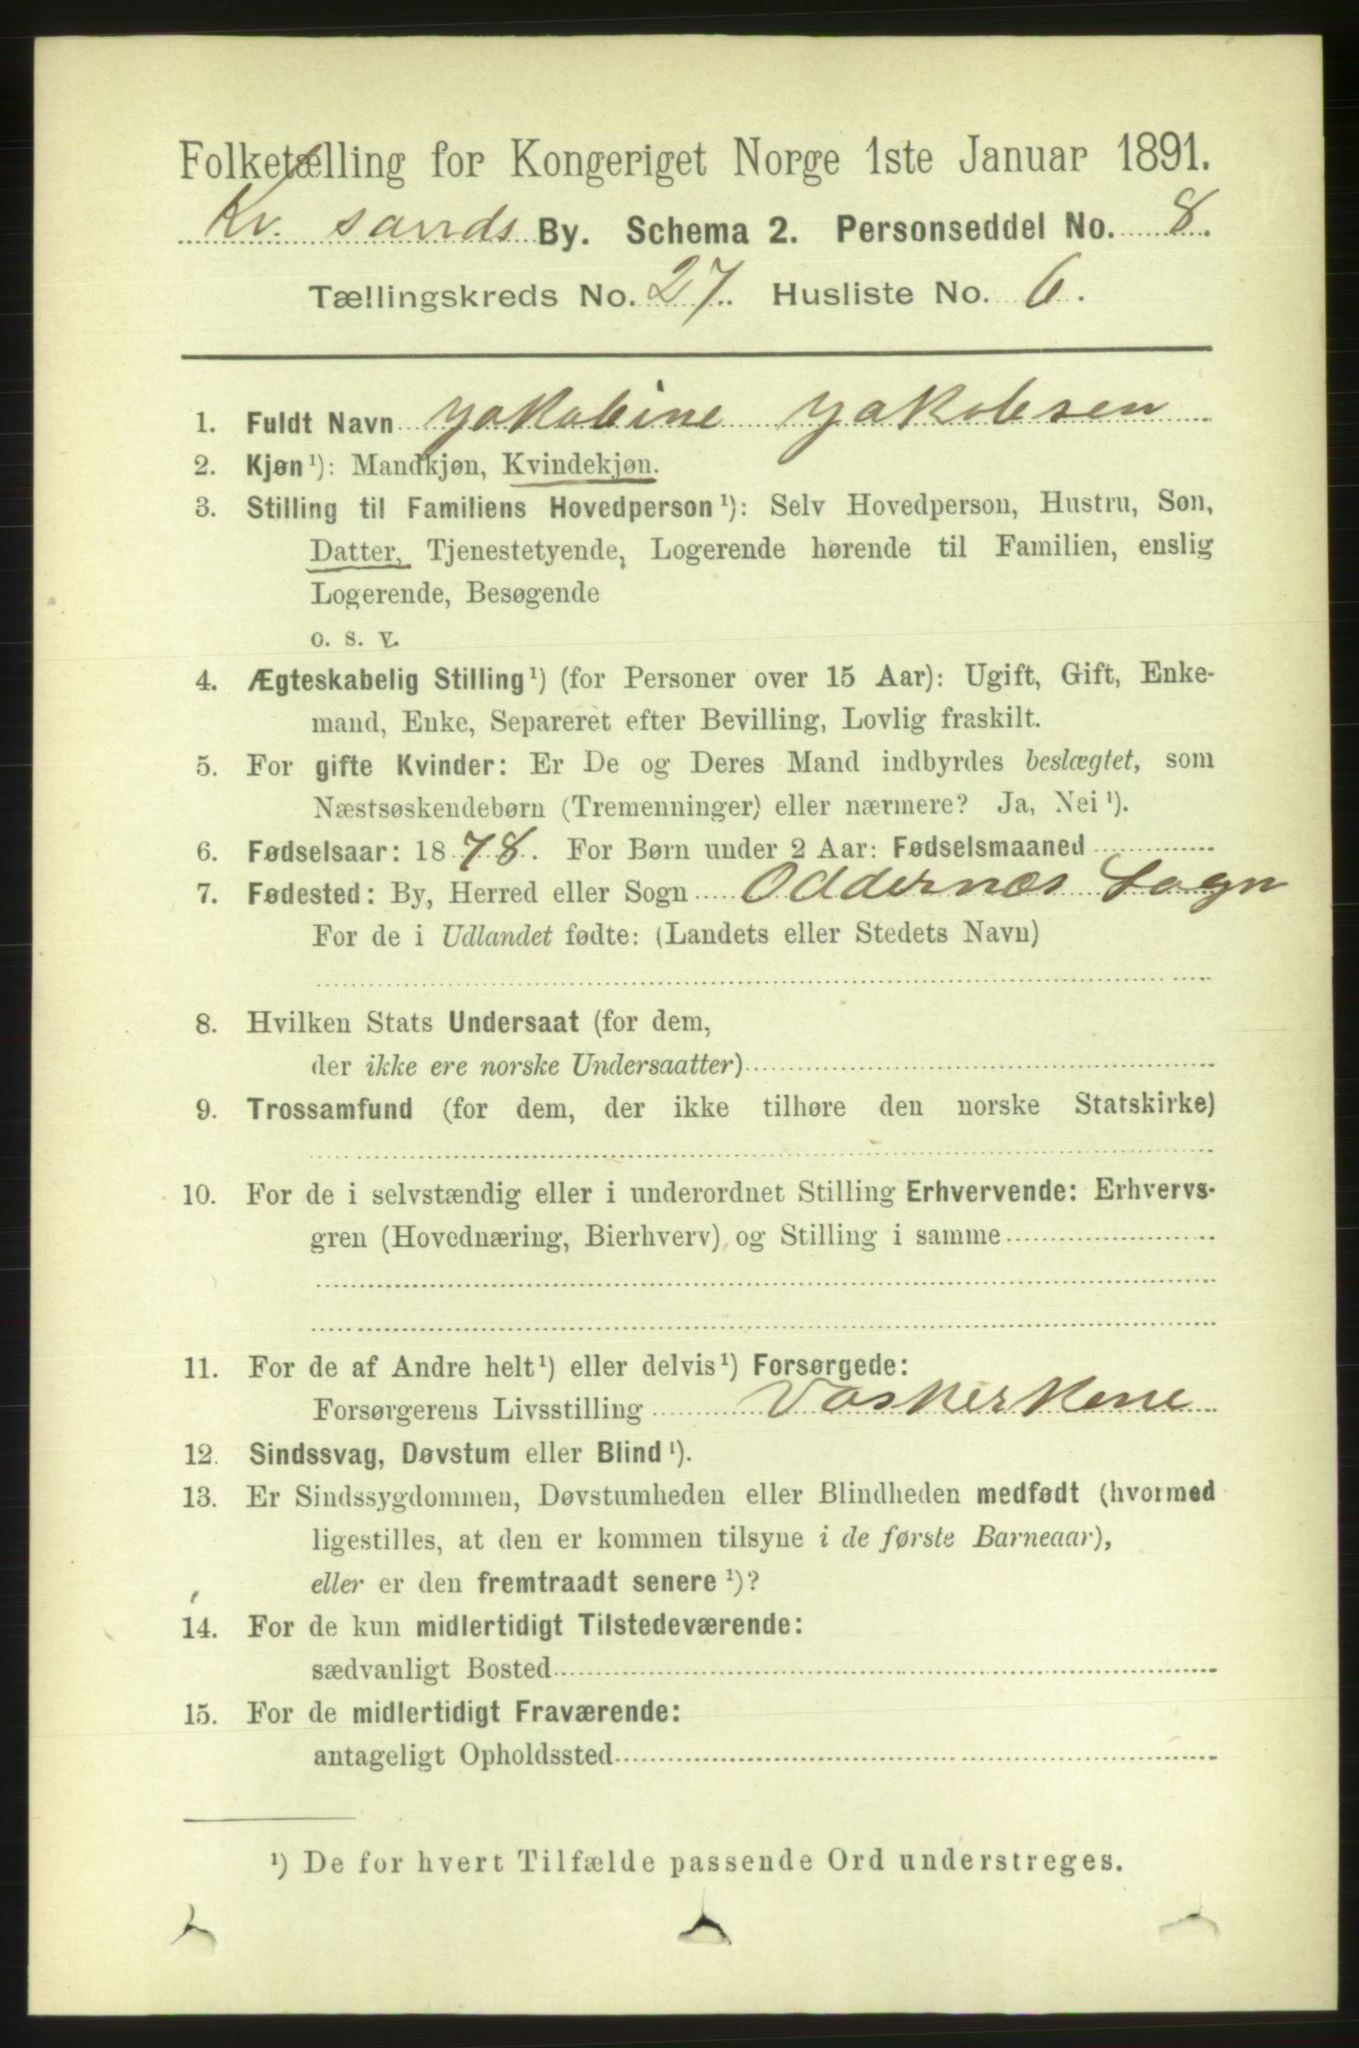 Folketælling for Kongeriget Norge 1ste Januar 1891.
Kr. sands By. Schema 2. Personseddel No. 8.
Tællingskreds No. 27. Husliste No. 6.
1. Fuldt Navn Yakobine Yakobsen
2. Kjøn¹): Mandkjøn, Kvindekjøn.
3. Stilling til Familiens Hovedperson¹): Selv Hovedperson, Hustru, Søn,
Datter, Tjenestetyende, Logerende hørende til Familien, enslig
Logerende, Besøgende
o. s. v.
4. Ægteskabelig Stilling¹) (for Personer over 15 Aar): Ugift, Gift, Enke-
mand, Enke, Separeret efter Bevilling, Lovlig fraskilt.
5. For gifte Kvinder: Er De og Deres Mand indbyrdes beslægtet, som
Næstsøskendebørn (Tremenninger) eller nærmere? Ja, Nei¹).
6. Fødselsaar: 1878. For Børn under 2 Aar: Fødselsmaaned
7. Fødested: By, Herred eller Sogn Oddernæs Sogn
For de i Udlandet fødte: (Landets eller Stedets Navn)
8. Hvilken Stats Undersaat (for dem,
der ikke ere norske Undersaatter)
9. Trossamfund (for dem, der ikke tilhøre den norske Statskirke)
10. For de i selvstændig eller i underordnet Stilling Erhvervende: Erhvervs-
gren (Hovednæring, Bierhverv) og Stilling i samme
11. For de af Andre helt¹) eller delvis¹) Forsørgede:
Forsørgerens Livsstilling Vaskerkene
12. Sindssvag, Døvstum eller Blind¹).
13. Er Sindssygdommen, Døvstumheden eller Blindheden medfødt (hvormed
ligestilles, at den er kommen tilsyne i de første Barneaar),
eller er den fremtraadt senere¹)?
14. For de kun midlertidigt Tilstedeværende:
sædvanligt Bosted
15. For de midlertidigt Fraværende:
antageligt Opholdssted
¹) De for hvert Tilfælde passende Ord understreges.